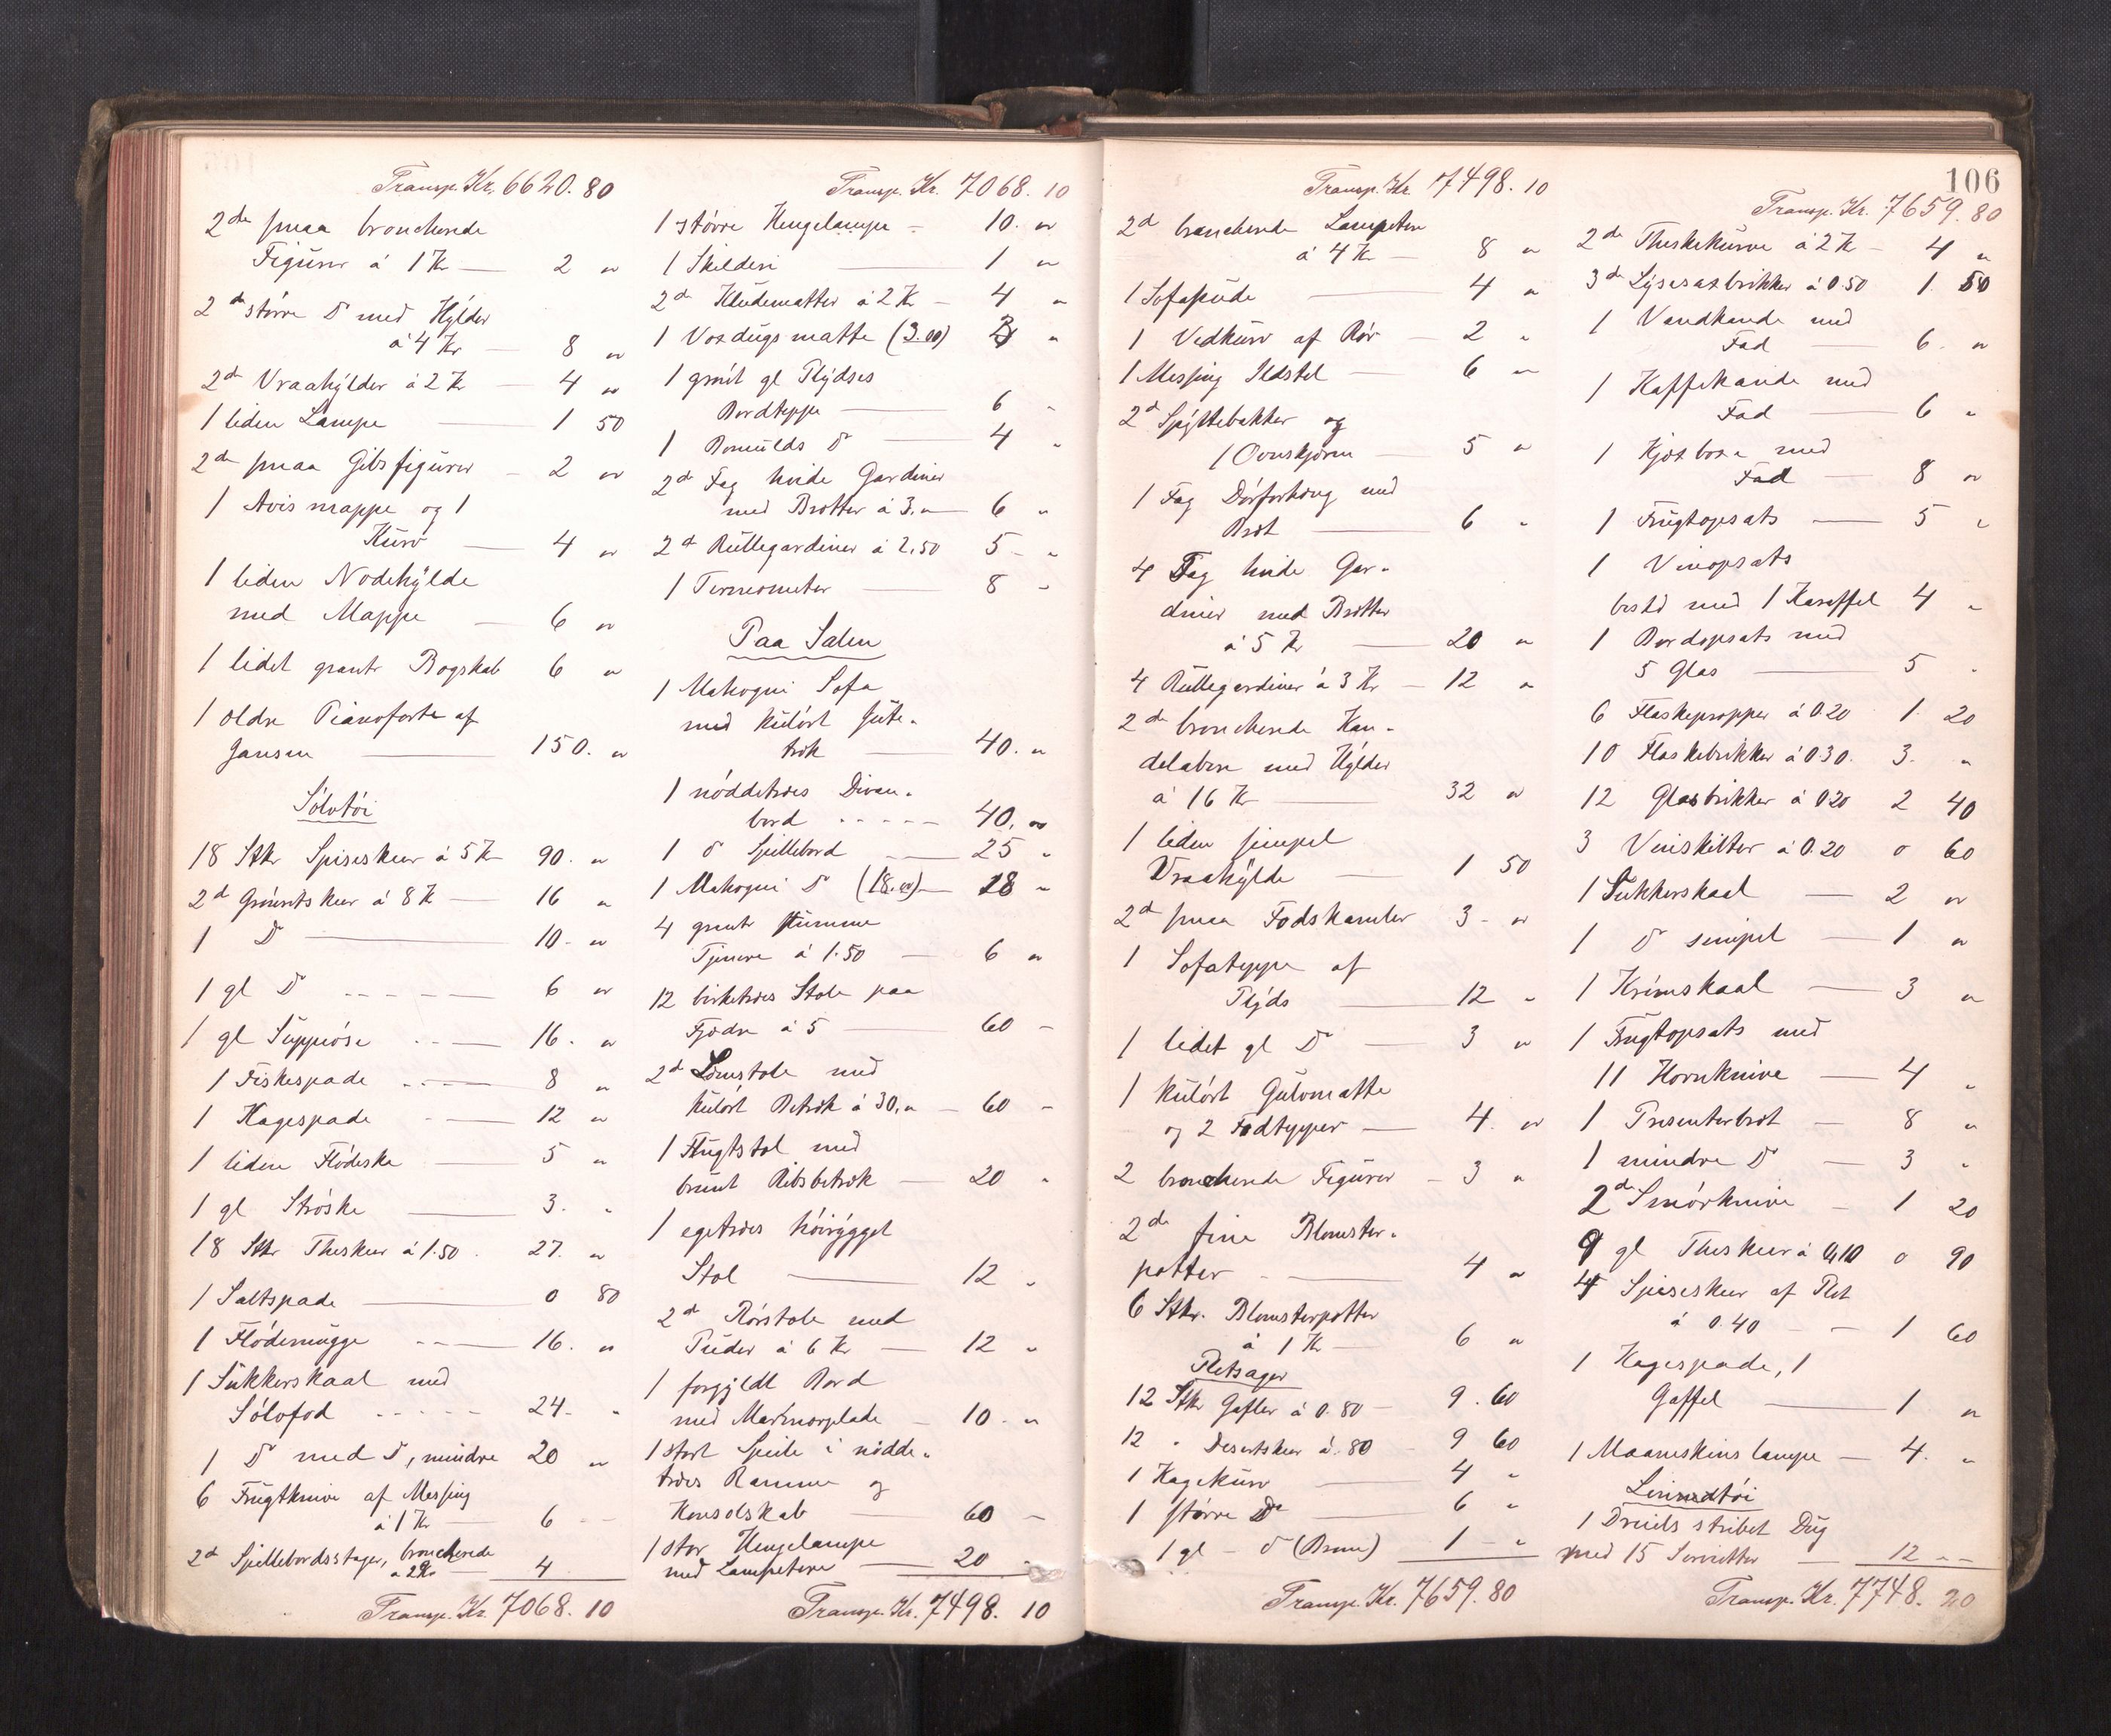 Transp. Kr. 6620. 80
2de smaa broncherede
Figurer á 1 Kr — 2 "
2de större D° med Hylder
á 4 Kr — 8 "
2de Vraahylder á 2 Kr — 4 "
1 liden Lampe — 1 50
2de smaa Gibsfigurer — 2 "
1 Avismappe og 1
Kurv — 4 "
1 liden Nodehylde
med Mappe — 6 "
1 lidet grant Bogskab 6 "
1 ældre Pianoforte af
Jansen — 150. "
Sölvtöi
18 Stkr Spiseskeer á 5 Kr 90. "
2de Grönertskeer á 8 Kr — 16 "
1 D° — 10. "
1 gl D° — 6 "
1 gl Suppeöse — 16. "
1 Fiskespade — 8 "
1 Kagespade — 12 "
1 liden Flödeske — 5 "
1 gl Ströske — 3. "
18 Stkr Theskeer á 1.50. 27. "
1 Saltspade — 0 80
1 Flödemugge — 16. "
1 Sukkerskaal med
Sölvfod — 24. "
1 D° med D°, mindre 20 "
6 Frugtknive af Messing
á 1 Kr — 6 -
2de Spillebordsstager, broncherede
á 2 Kr — 4
Transp. Kr. 7068. 10
Transp. Kr. 7068. 10
1 större Hengelampe — 10. "
1 Skilderi — 1 "
2de Kludematter á 2 Kr — 4 "
1 Voxdugsmatte (3.00) 3 "
1 grönt gl Plydses
Bordteppe — 6 "
1 Bomulds D° — 4 "
2de Fag hvide Gardiner
med Bretter á 3." — 6 "
2de Rullegardiner á 2,50 5 - "
1 Termometer — 8 "
Paa Salen
1 Mahogni Sofa
med kulört Jute-
træk — 40. "
1 nöddetræes Divan-
bord — 40. "
1 D° Spillebord — 25 "
1 Mahogni D° (18.00) — 18 "
4 grante stumme
Tjenere á 1.50 — 6 "
12 birketræes Stole paa
Fjædre á 5 — 60 -
2de Lænestole med
kulört Betræk á 30," — 60 -
1 Flugtstol med
brunt Ribsbetræk — 20 "
1 egetræes höirygget
Stol — 12 "
2de Rörstole med
Puder á 6 Kr — 12 "
1 forgyldt Bord
med Marmorplade — 10. "
1 stort Speile i nödde-
træes Ramme og
Konsolskab — 60 -
1 stor Hengelampe
med Lampetere — 20
Transp. Kr. 7498. 10
Transp. Kr. 7498. 10
2de broncherede Lampetere
á 4 Kr — 8 "
1 Sofapude — 4 "
1 Vedkurv af Rör — 2 "
1 Messing Ildstel — 6 "
2de Spyttebakker og
1 Ovnskjærm — 5 "
1 Fag Dörforhæng med
Bræt — 6 "
4 Fag hvide Gar-
diner med Bretter
á 5 Kr — 20 "
4 Rullegardiner á 3 Kr — 12 "
2de broncherede Kan-
delabere med Hylder
á 16 Kr — 32 "
1 liden simpel
Vraahylde — 1 50
2de smaa Fodskamler 3 - "
1 Sofateppe af
Plyds — 12 "
1 lidet gl D° — 3 "
1 kulört Gulvmatte
og 2 Fodtepper — 4. "
2 broncherede Figurer — 3 "
2de fine Blomster-
potter — 4 "
6 Stkr. Blomsterpotter
á 1 Kr — 6 "
Pletsager
12 Stkr Gafler á 0.80 — 9. 60
12 " Desertskeer á .80 — 9 60
1 Kagekurv — 4 "
1 större D° — 6 "
1 gl — D° — 1 - "
Transp. Kr. 7659. 80
106
Transp. Kr. 7659. 80
2de Theskekurve á 2 Kr — 4 "
3de Lysesaxbrikker á 0.50 1. 50
1 Vandkande med
Fad — 6. "
1 Kaffekande med
Fad — 6 "
1 Kjæxboxe med
Fad — 8 "
1 Frugtopsats — 5 "
1 Vinopsats
bestd med 1 Karaffel 4 "
1 Bordopsats med
5 Glas — 5 "
6 Flaskepropper á 0.20 1. 20
10 Flaskebrikker á 0.30. 3. "
12 Glasbrikker á 0.20 2 40
3 Vinskilter á 0.20 0 60
1 Sukkerskaal — 2 "
1 D° simpel — 1 "
1 Krémskaal — 3 "
1 Frugtopsats med
11 Hornknive — 4 "
1 Presenterbræt — 8 "
1 mindre D° — 3 "
2de Smörknive — 1 20
9 gl Theskeer á 0,10 0 90
4 Spiseskeer af Plet
á 0.40 — 1 60
1 Kagespade, 1
Gaffel — 1 "
1 Maaneskinslampe — 4. "
Linnedtöi
1 Dreiels stribet Dug
med 15 Servietter — 12 - -
Transp. Kr. 7748. 20